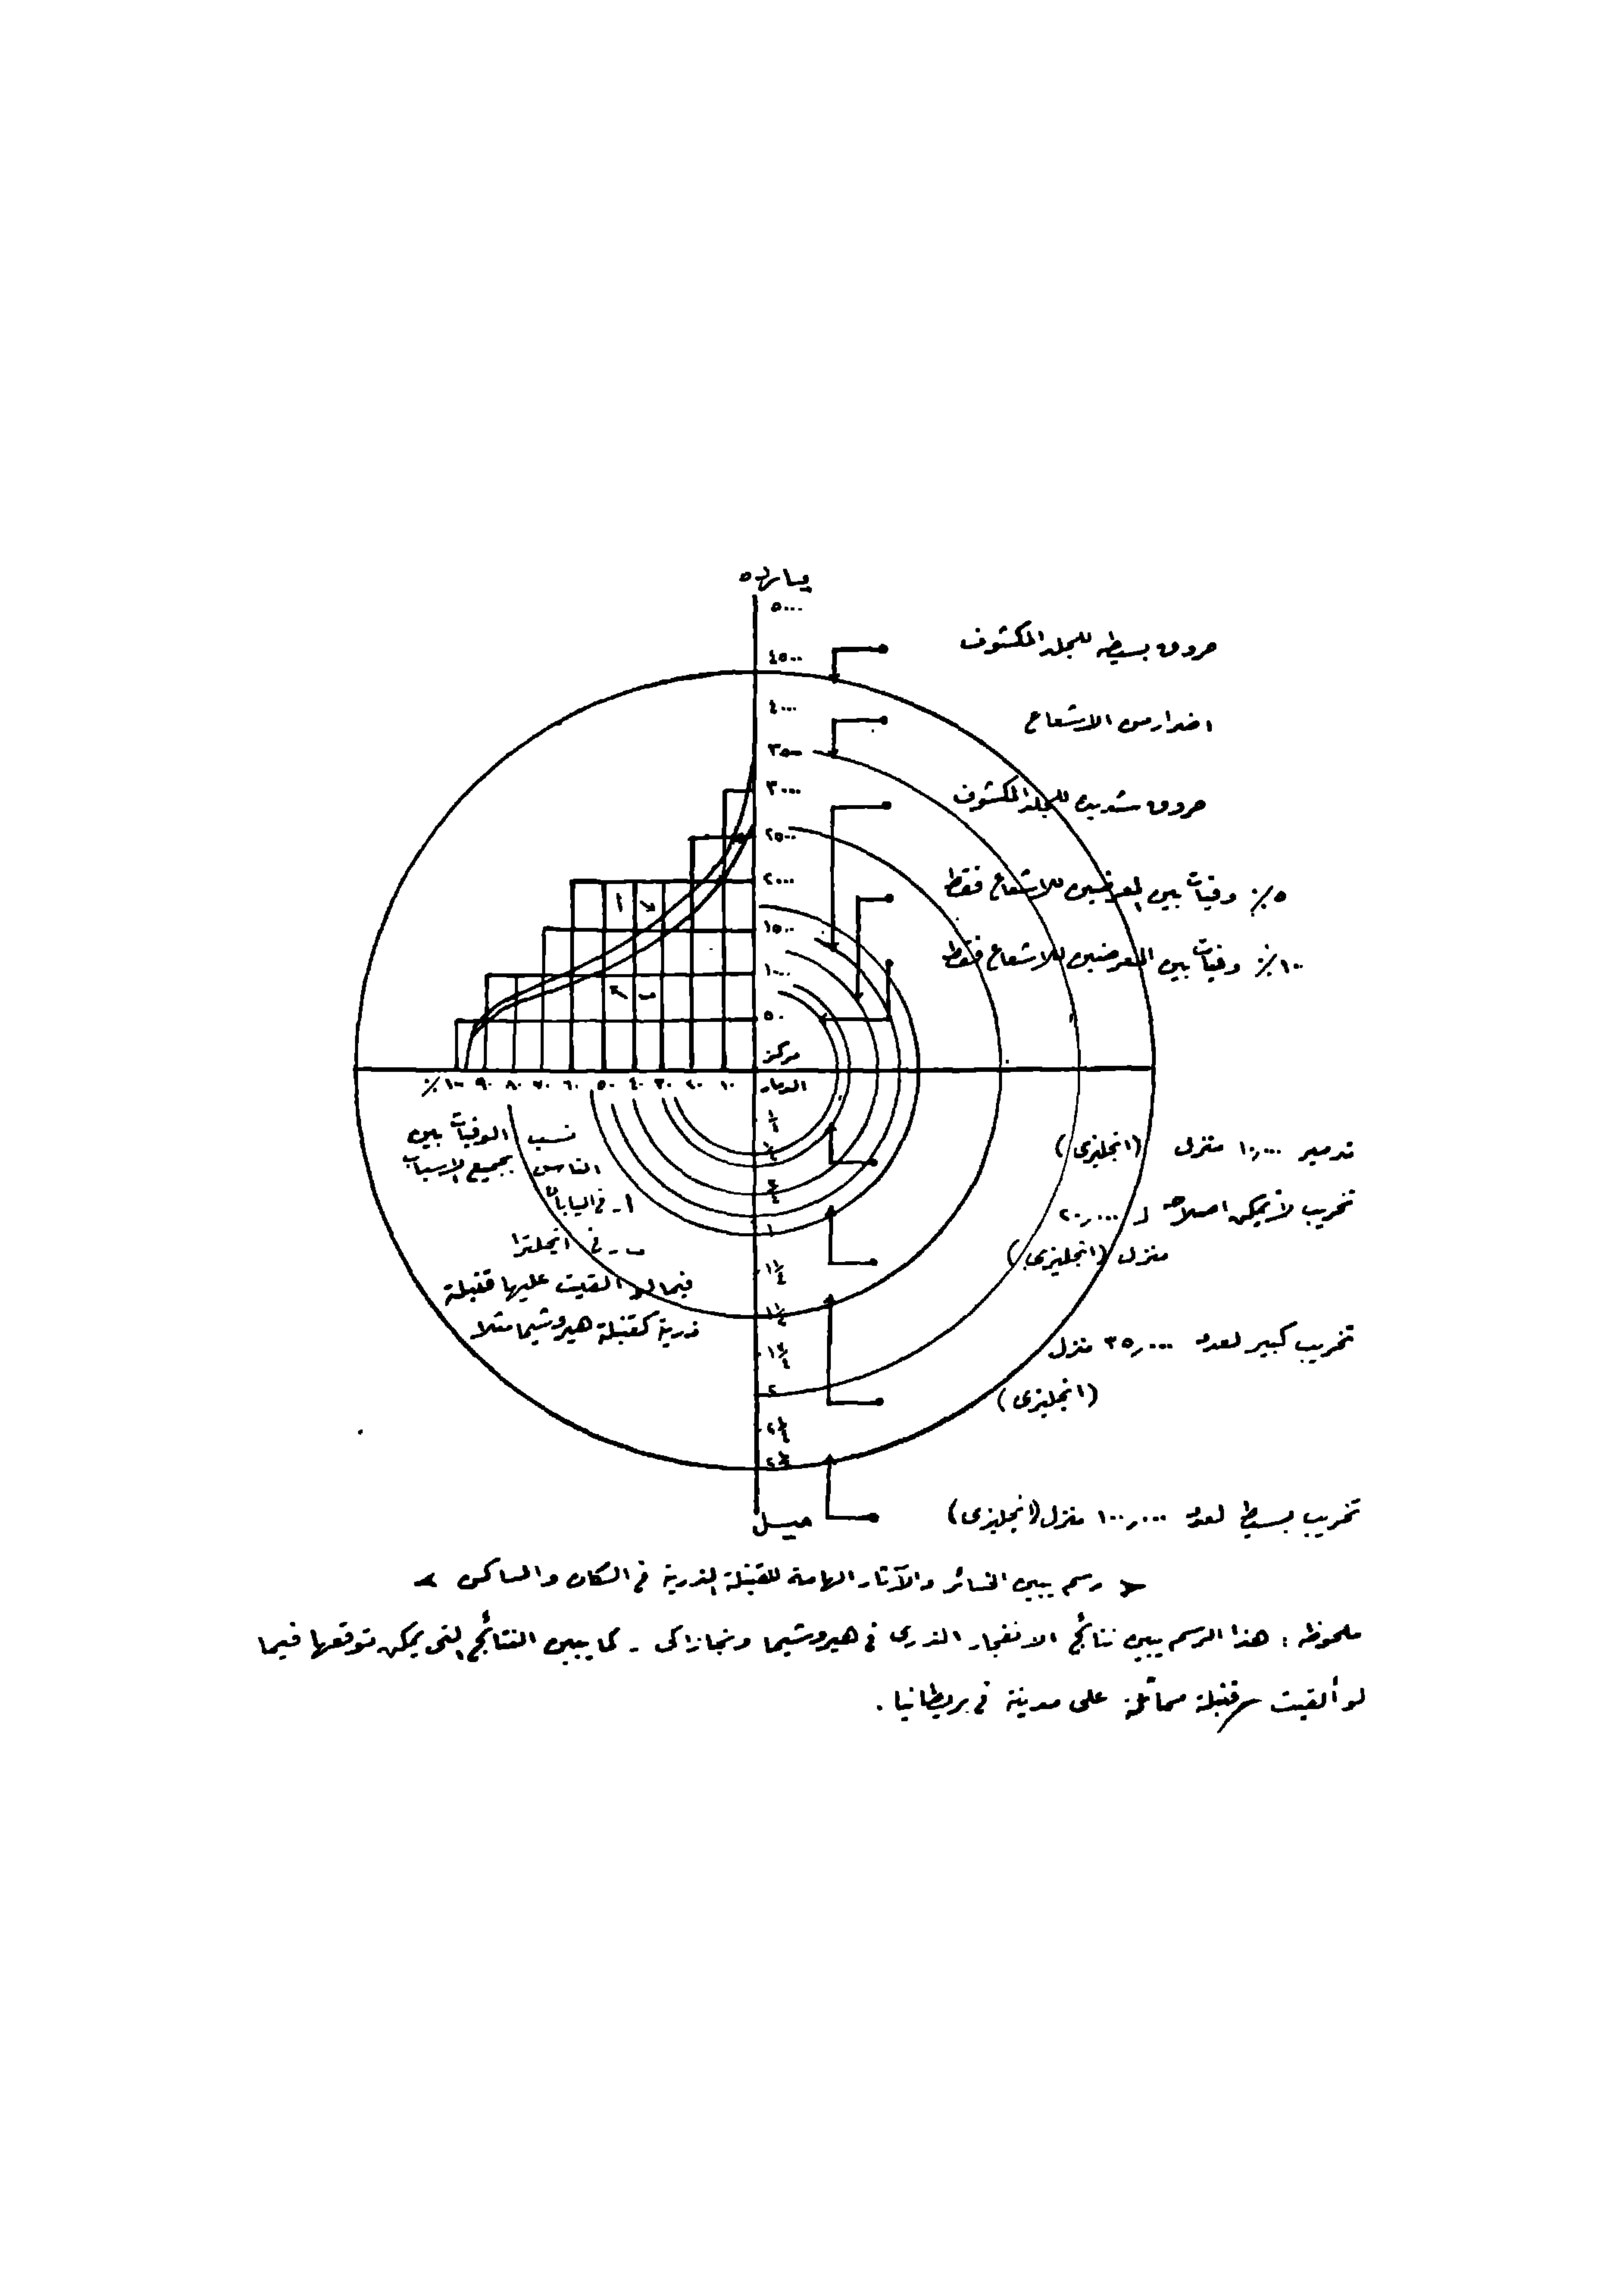 يارده
٥٠٠٠
٤٥٠٠
٤٠٠٠
٣٥٠٠
٣٠٠٠
٢٥٠٠
٢٠٠٠
١٥٠٠
١٠٠٠
٥٠٠
حروق بسيطه للجلد المكشوف
اضرار من الاشعاع
حروق شديدة للجلد المكشوف
٥٪ وفيات بين المعرضين للاشعاع فقط
١٠٠٪ وفيات بين المعرضين للاشعاع فقط
أ
ب
مركز
الدمار
١٠ ٢٠ ٣٠ ٤٠ ٥٠ ٦٠ ٧٠ ٨٠ ٩٠ ١٠٠٪
نسب الوفيات بين
الناس بجميع الاسباب
أ - فى اليابان
ب - فى انجلترا
فيما لو القيت عليها قنبلة
ذرية كقنبلة هيروشيما مثلا
١/٤
١/٢
٣/٤
١
١ ١/٤
١ ١/٢
١ ٣/٤
٢
٢ ١/٤
٢ ١/٢
ميل
تدمير ١٠,٠٠٠ منزل (انجليزى)
تخريب لا يمكن اصلاحه لـ ٢٠,٠٠٠
منزل (انجليزى)
تخريب كبير لعدد ٣٥,٠٠٠ منزل
(انجليزى)
تخريب بسيط لعدد ١٠٠,٠٠٠ منزل (انجليزى)
رسم يبين الخسائر والآثار الهامة للقنبلة الذرية فى السكان والمساكن
ملحوظه : هذا الرسم يبين نتائج الانفجار الذرى فى هيروشيما ونجازاكى - كما يبين النتائج التى يمكن توقعها فيما
لو ألقيت قنبلة مماثلة على مدينة فى بريطانيا .